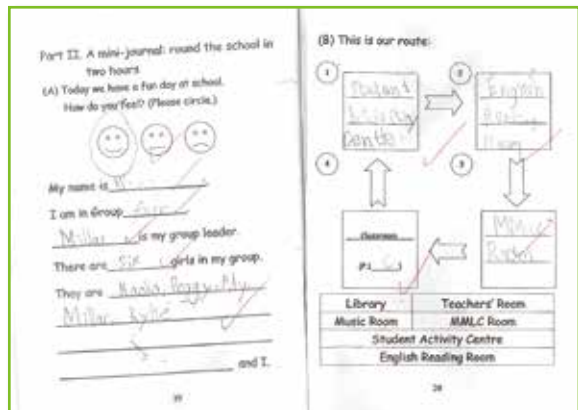 Part II. A mini-journal: round the school in
two hours
(A) Today we have a fun day at school.
How do you feel? (Please circle.)
My name is
I am in Group
Millar is my group leader.
There are six girls in my group.
They are
Millar,
and I.
(B) This is our route:
1
2
Student
Activity
Centre
English
Reading
Room
4
3
Classroom
(P.1
Music
Room
Library
Teachers' Room
Music Room
MMLC Room
Student Activity Centre
English Reading Room